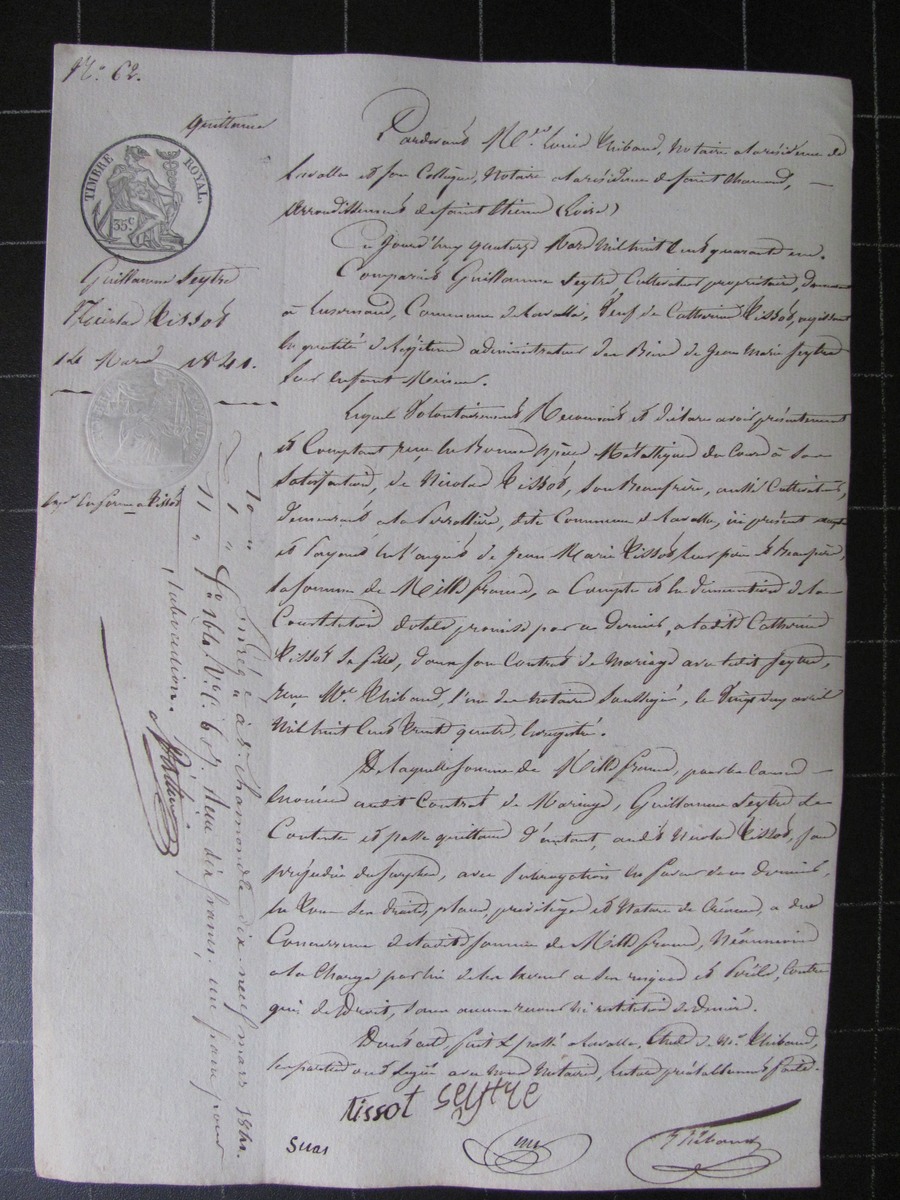 N.° 62.
quittance
TIMBRE ROYAL.
35 C.
Guillaume Seytre
Nicolas Tissot
14 Mars 1841.
Pardevant M.e Louis Thibaud, Notaire à la résidence de
Lavalla et son Collègue, Notaire à la résidence de Saint Chamond,
arrondissement de Saint Etienne (Loire)
Ce jourd'huy quatorze Mars mil huit cent quarante un.
Comparait Guillaume Seytre Cultivateur propriétaire, demeurant
à Luzernod, Commune de Lavalla, Veuf de Catherine Tissot, agissant
en qualité de légitime administrateur des Biens de Jean Marie Seytre
son enfant Mineur.
Lequel Volontairement Reconnait et déclare avoir présentement
et Comptant reçu en Bonnes espèces Métalliques du Cours à sa
Satisfaction, de Nicolas Tissot, son Beaufrère, aussi Cultivateur,
demeurant à la dite Commune de Lavalla, ici présent
et Payant en l'acquit de Jean Marie Tissot, leur père et Beaupère,
la somme de Mille francs, à Compte et en diminution de la
Constitution dotale promise par ce dernier, à ladite Catherine
Tissot sa fille, dans son Contrat de Mariage avec ledit Seytre,
reçu M.e Thibaud, l'un des notaires soussignés, le vingt six avril
Mil huit Cent Trente quatre, Enregistré.
De laquelle somme de Mille francs, pour les Causes
énoncées audit Contrat de Mariage, Guillaume Seytre se
Contente et passe quittance d'autant, audit Nicolas Tissot, sans
préjudice du surplus, avec subrogation en faveur de ce dernier,
en tous ses droits, place, privilège et Nature de Créance, à due
Concurrence de ladite somme de Mille francs, Néanmoins
à la Charge par lui de les exercer à ses risques et Périls, Contre
qui de Droit, sans aucun recours ni restitution de deniers.
Dont acte, fait & passé à Lavalla, Etude de M.e Thibaud,
les parties ont signé avec nous Notaires, lecture préalablement faite.
Tissot Seytre
Thibaud
Enreg. à St. Chamond le dix neuf mars 1841.
f.° 36 V.° C. 6 & 7. Reçu dix francs, un franc pour
subvention.
10 "
1 "
11 "